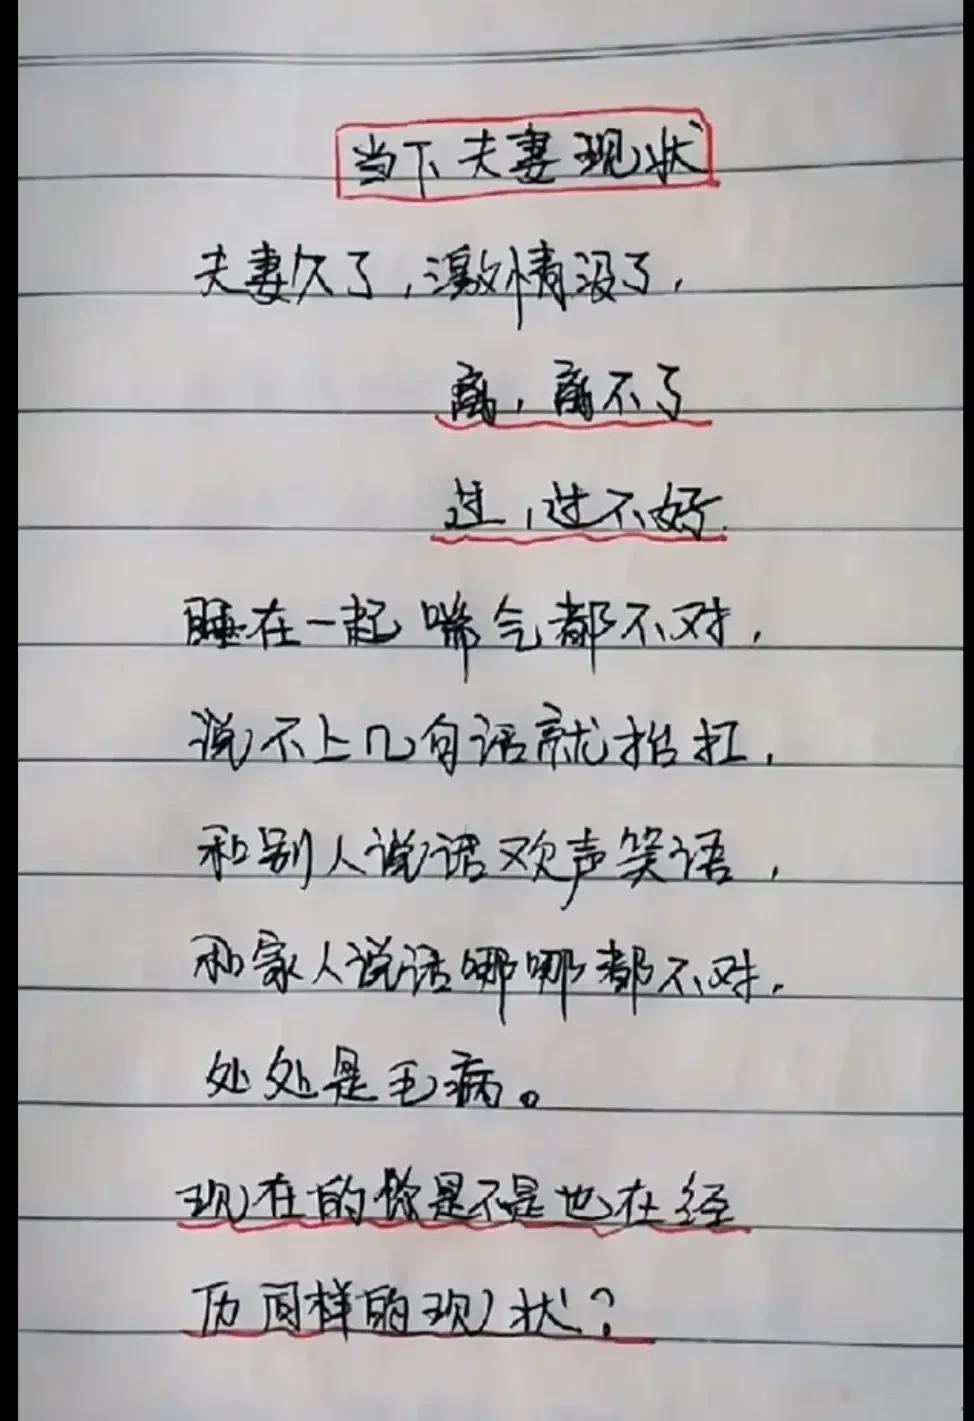 当下夫妻现状
夫妻久了,激情没了,
离,离不了
过,过不好.
睡在一起喘气都不对,
说不上几句话就抬扛,
和别人说话欢声笑语,
和家人说话哪哪都不对,
处处是毛病。
现在的你是不是也在经
历同样的现状?